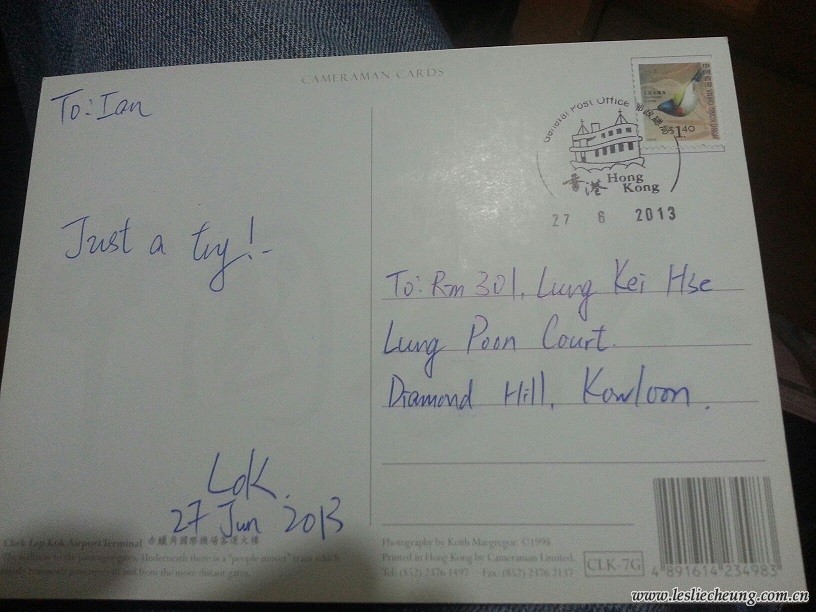 CAMERAMAN CARDS
To: Ian
Just a try!
Lok.
27 Jun 2013
General Post Office 郵政總局
香港 Hong Kong
27 6 2013
$1.40
To: Rm 301, Lung Kei Hse
Lung Poon Court.
Diamond Hill, Kowloon.
Chek Lap Kok Airport Terminal 赤鱲角國際機場客運大樓
Photography by Keith Macgregor. ©1998
Printed in Hong Kong by Cameraman Limited.
Tel: (852) 2376 1497 Fax: (852) 2376 2137
CLK-7G
4 891614 234983
www.lesliecheung.com.cn